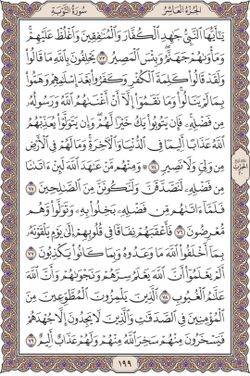 الجزء العاشر سورة التوبة
يَٰٓأَيُّهَا ٱلنَّبِيُّ جَٰهِدِ ٱلۡكُفَّارَ وَٱلۡمُنَٰفِقِينَ وَٱغۡلُظۡ عَلَيۡهِمۡۚ
وَمَأۡوَىٰهُمۡ جَهَنَّمُۖ وَبِئۡسَ ٱلۡمَصِيرُ ٧٣ يَحۡلِفُونَ بِٱللَّهِ مَا قَالُواْ
وَلَقَدۡ قَالُواْ كَلِمَةَ ٱلۡكُفۡرِ وَكَفَرُواْ بَعۡدَ إِسۡلَٰمِهِمۡ وَهَمُّواْ
بِمَا لَمۡ يَنَالُواْۚ وَمَا نَقَمُوٓاْ إِلَّآ أَنۡ أَغۡنَىٰهُمُ ٱللَّهُ وَرَسُولُهُۥ
مِن فَضۡلِهِۦۚ فَإِن يَتُوبُواْ يَكُ خَيۡرٗا لَّهُمۡۖ وَإِن يَتَوَلَّوۡاْ يُعَذِّبۡهُمُ
ٱللَّهُ عَذَابًا أَلِيمٗا فِي ٱلدُّنۡيَا وَٱلۡأٓخِرَةِۚ وَمَا لَهُمۡ فِي ٱلۡأَرۡضِ
مِن وَلِيّٖ وَلَا نَصِيرٖ ٧٤ ۞ وَمِنۡهُم مَّنۡ عَٰهَدَ ٱللَّهَ لَئِنۡ ءَاتَىٰنَا
مِن فَضۡلِهِۦ لَنَصَّدَّقَنَّ وَلَنَكُونَنَّ مِنَ ٱلصَّٰلِحِينَ ٧٥
فَلَمَّآ ءَاتَىٰهُم مِّن فَضۡلِهِۦ بَخِلُواْ بِهِۦ وَتَوَلَّواْ وَّهُم
مُّعۡرِضُونَ ٧٦ فَأَعۡقَبَهُمۡ نِفَاقٗا فِي قُلُوبِهِمۡ إِلَىٰ يَوۡمِ يَلۡقَوۡنَهُۥ
بِمَآ أَخۡلَفُواْ ٱللَّهَ مَا وَعَدُوهُ وَبِمَا كَانُواْ يَكۡذِبُونَ ٧٧
أَلَمۡ يَعۡلَمُوٓاْ أَنَّ ٱللَّهَ يَعۡلَمُ سِرَّهُمۡ وَنَجۡوَىٰهُمۡ وَأَنَّ ٱللَّهَ
عَلَّٰمُ ٱلۡغُيُوبِ ٧٨ ٱلَّذِينَ يَلۡمِزُونَ ٱلۡمُطَّوِّعِينَ مِنَ
ٱلۡمُؤۡمِنِينَ فِي ٱلصَّدَقَٰتِ وَٱلَّذِينَ لَا يَجِدُونَ إِلَّا جُهۡدَهُمۡ
فَيَسۡخَرُونَ مِنۡهُمۡ سَخِرَ ٱللَّهُ مِنۡهُمۡ وَلَهُمۡ عَذَابٌ أَلِيمٌ ٧٩
١٩٩